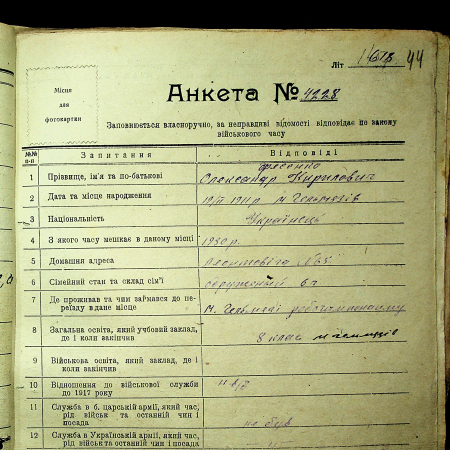 Літ 44
Місце
для
фотокартки
Анкета № 4228
Заповнюється власноручно, за неправдиві відомості відповідає по закону
військового часу
№№ п-п Запитання Відповіді
1 Прізвище, ім'я та по-батькові Олександр Кирилович
2 Дата та місце народження 1911 р. м
3 Національність Українець
4 З якого часу мешкає в даному місці 1930 р.
5 Домашня адреса
6 Сімейний стан та склад сім'ї
7 Де проживав та чим займався до пе-
реїзду в дане місце м.
8 Загальна освіта, який учбовий заклад,
де і коли закінчив 8 клас
9 Військова освіта, який заклад, де і
коли закінчив
10 Відношення до військової служби
до 1917 року
11 Служба в б. царській армії, який час,
рід військ та останній чин і
посада не був
12 Служба в Українській армії, який час,
рід військ та останній чин і посада